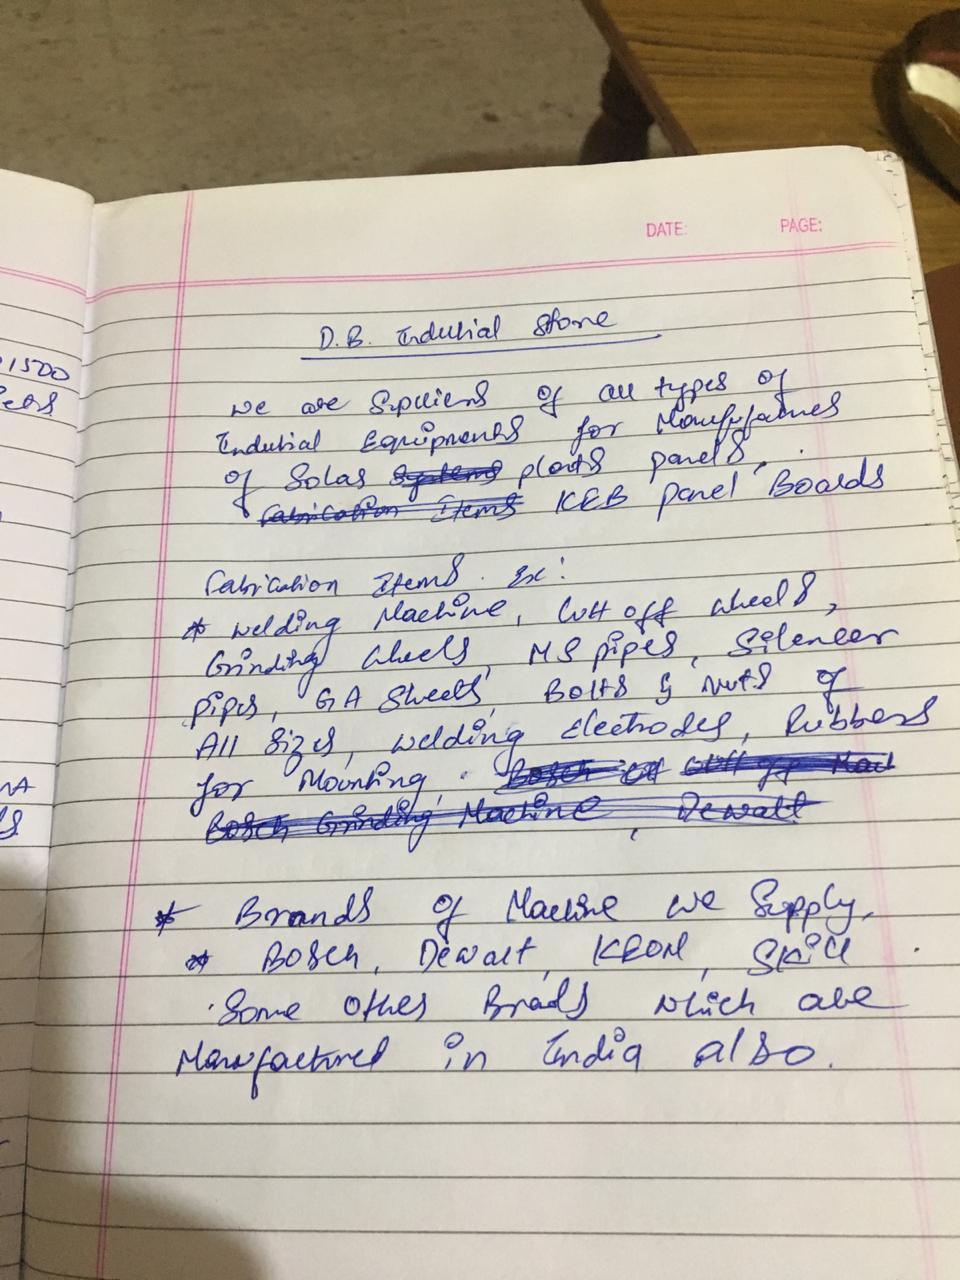 DATE: PAGE:
D.B. Industrial Store
we are Suppliers of all types of
Industrial Equipments for Manufactures
of Solar systems plants panels,
Fabrication Items KEB panel Boards
Fabrication Items. Ex:
* welding Machine, Cutt off wheels,
Grinding wheels, MS pipes, Silencer
pipes, GA Sheets, Bolts & Nuts of
All Sizes, welding Electrodes, Rubbers
for Mounting, Bosch Cutt off
Bosch Grinding Machine, Dewalt
* Brands of Machine we Supply,
* Bosch, Dewalt, KEOM, Skill
Some other Brads which are
Manufactured in India also.
1500